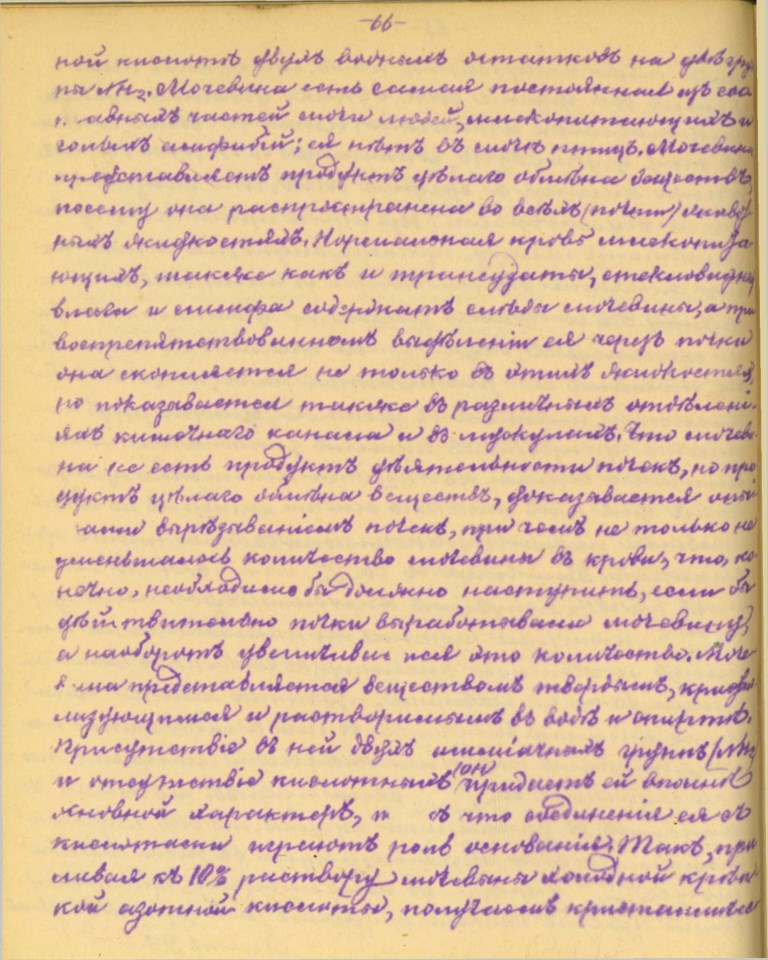 -66-
ной кислотѣ двухъ водныхъ остатковъ на двѣ гру
пы NH₂. Мочевина есть самая постоянная изъ сос
авныхъ частей мочи людей, млекопитающихъ и
голыхъ амфибій; ея нѣтъ въ мочѣ птицъ. Мочевина
представляетъ продуктъ цѣлаго обмѣна веществъ,
посему она распространена во всѣхъ (почти) живот
ныхъ жидкостяхъ. Нормальная кровь млекопита
ющихъ, также какъ и транссудаты, стекловидная
влага и лимфа содержатъ слѣды мочевины, а при
воспрепятствованномъ выдѣленіи ея черезъ почки
она скопляется не только въ этихъ жидкостяхъ,
но показывается также въ различныхъ отдѣлені
яхъ кишечнаго канала и въ мускулахъ. Что мочеви
на не есть продуктъ дѣятельности почекъ, но про
дуктъ цѣлаго обмѣна веществъ, доказывается опы
ами вырѣзываніемъ почекъ, при чемъ не только не
уменьшалось количество мочевины въ крови, что, ко
нечно, необходимо бы должно наступить, если бы
дѣйствительно почки вырабатывали мочевину,
а наоборотъ увеличива лося это количество. Моче
в на представляется веществомъ твердымъ, криста
лизующимся и растворимымъ въ водѣ и спиртѣ.
Присутствіе въ ней двухъ амміачныхъ группъ (NH₂
и отсутствіе кислотныхъ (OH придаетъ ей вполнѣ
основной характеръ, т къ что соединенія ея съ
кислотами играютъ роль основанія. Такъ, при
ливая къ 10% раствору мочевины холодной крѣп
кой азотной кислоты, получаемъ кристаллическ